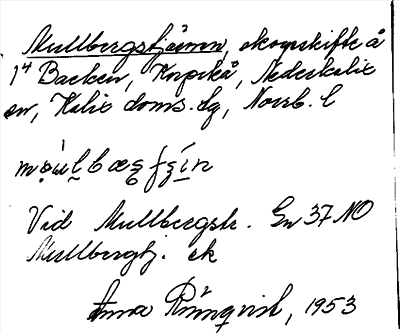 Mullbergstjärnen, skogsskifte å
1⁴ Backen, Korpikå, Nederkalix
sn, Kalix doms. lg, Norrb. l
Vid Mullbergsk. En 37 NO
Mullbergtj. ek
Anna Rönnqvist, 1953